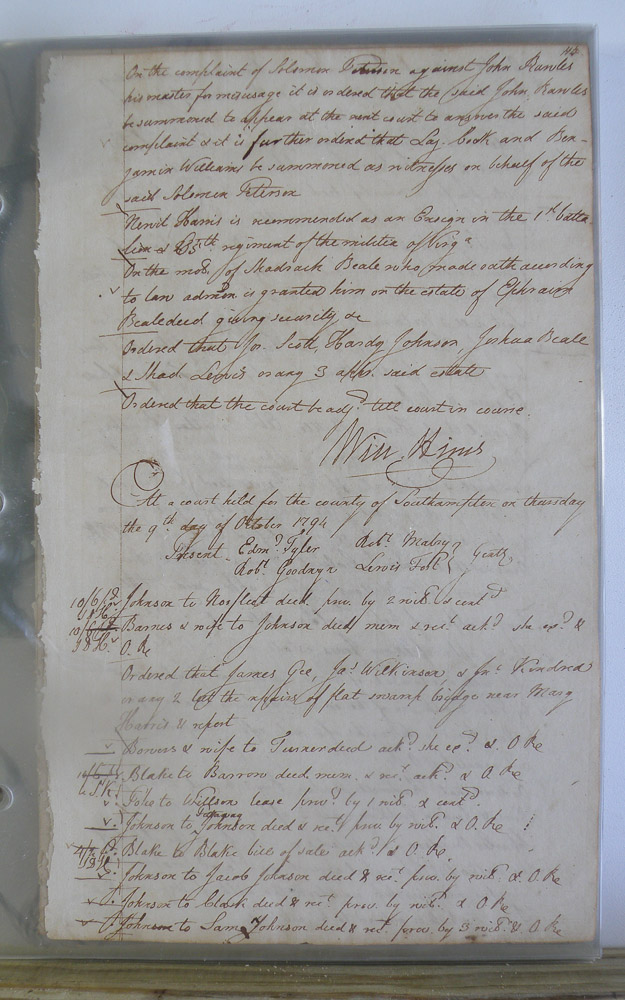 On the complaint of Solomon Peterson against John Rawles
his master for misusage it is ordered that the said John Rawles
be summoned to appear at the next court to answer the said
complaint & it is further ordered that Laz. Cook and Ben-
jamin Williams be summoned as witnesses on behalf of the
said Solomon Peterson
Newit Harris is recommended as an Ensign in the 1st batta
lion & 65th regiment of the militia of Virga
On the mo. of Shadrach Beale who made oath according
to law admon is granted him on the estate of Ephraim
Beale decd giving security &c
Ordered that Jos. Scott, Hardy Johnson, Joshua Beale
& Shad. Lewis or any 3 appr. said estate
Ordered that the court be adjd till court in course
Will. Hines
At a court held for the county of Southampton on thursday
the 9th day of October 1794
Present Edmd Tyler Robt Mabry
Robt Goodwyn Lewis Fort Gent
Johnson to Norfleet deed prov. by 2 wits. & contd
Barnes & wife to Johnson deed mem & rect ackd she exd &
O Re
Ordered that James Gee, Jas Wilkinson & Jno Kindred
or any 2 let the repairs of flat swamp bridge near Mary
Harris's & report
Bowers & wife to Turner deed ackd she exd & O Re
Blake to Barrow deed mem. & rect ackd & O Re
to lease provd by 1 wit. & contd
Johnson to Johnson deed & rect prov by wits. & O Re
Blake to Blake bill of sale ackd & O Re
Johnson to Jacob Johnson deed & rect prov. by wits & O Re
Johnson to Clark deed & rect prov. by wits. & O Re
Johnson to Saml Johnson deed & rect prov. by 3 wits. & O Re